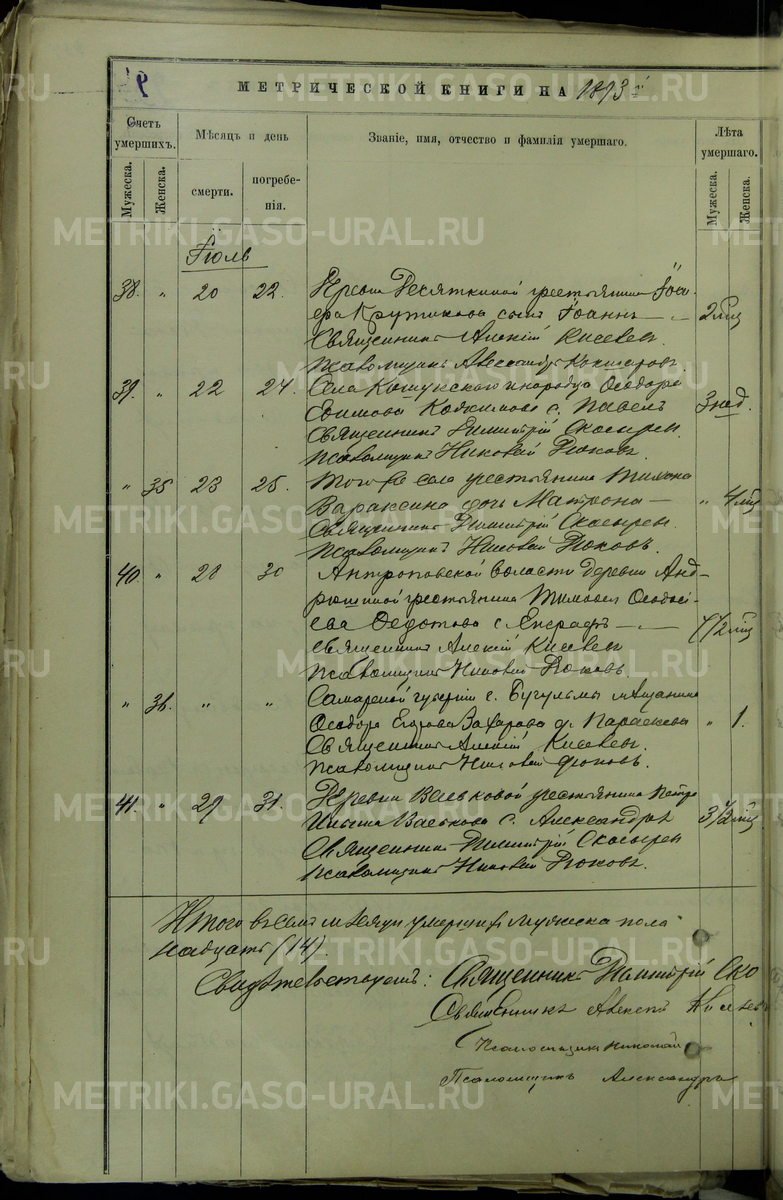 МЕТРИЧЕСКОЙ КНИГИ НА 1893 г
Счетъ умершихъ.
Мѣсяцъ и день
Званіе, имя, отчество и фамилія умершаго.
Лѣта умершаго.
Мужеска.
Женска.
смерти.
погребенія.
Мужеска.
Женска.
Іюль
38. " 20 22. Деревни Десяткиной крестьянина
Крутикова сынъ Іоаннъ — 2 мѣс
Священникъ Алексій Киселевъ.
Псаломщикъ Александръ
39. " 22 24. Села Кошукскаго инородца Ѳеодора
Ефимова с. Павелъ 3 нед.
Священникъ Димитрій Скосыревъ.
Псаломщикъ Николай
" 35 23 25. Того же села крестьянина
Вараксина дочь Матрона — " 4 мѣс
Священникъ Димитрій Скосыревъ.
Псаломщикъ Николай
40 " 28 30 Антроповской волости деревни Анд-
рюшиной крестьянина Тимоѳея Ѳеодось-
ева Ѳедотова с. 1/2 мѣс
Священникъ Алексій Киселевъ
Псаломщикъ Николай
" 36. " " Самарской губерніи г. Бугульмы мѣщанина
Ѳеодора Егорова Захарова д. Параскева " 1.
Священникъ Алексій Киселевъ.
Псаломщикъ Николай
41. " 29 31. Деревни Васьковой крестьянина Петра
Ильина Васькова с. Александръ 3 1/2 мѣс
Священникъ Димитрій Скосыревъ
Псаломщикъ Николай
Итого въ семъ мѣсяцѣ умершихъ мужеска пола
надцать (14).
Свидѣтельствуемъ: Священникъ Димитрій Ско
Священникъ Алексій Киселевъ
Псаломщикъ Николай
Псаломщикъ Александръ
METRIKI.GASO-URAL.RU